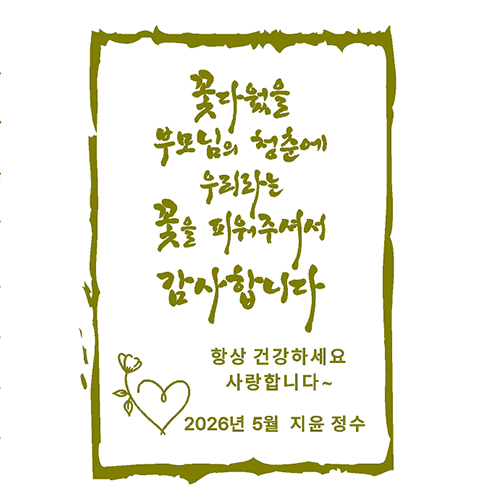 꽃다웠을
부모님의 청춘에
우리라는
꽃을 피워주셔서
감사합니다
항상 건강하세요
사랑합니다~
2026년 5월 지윤 정수